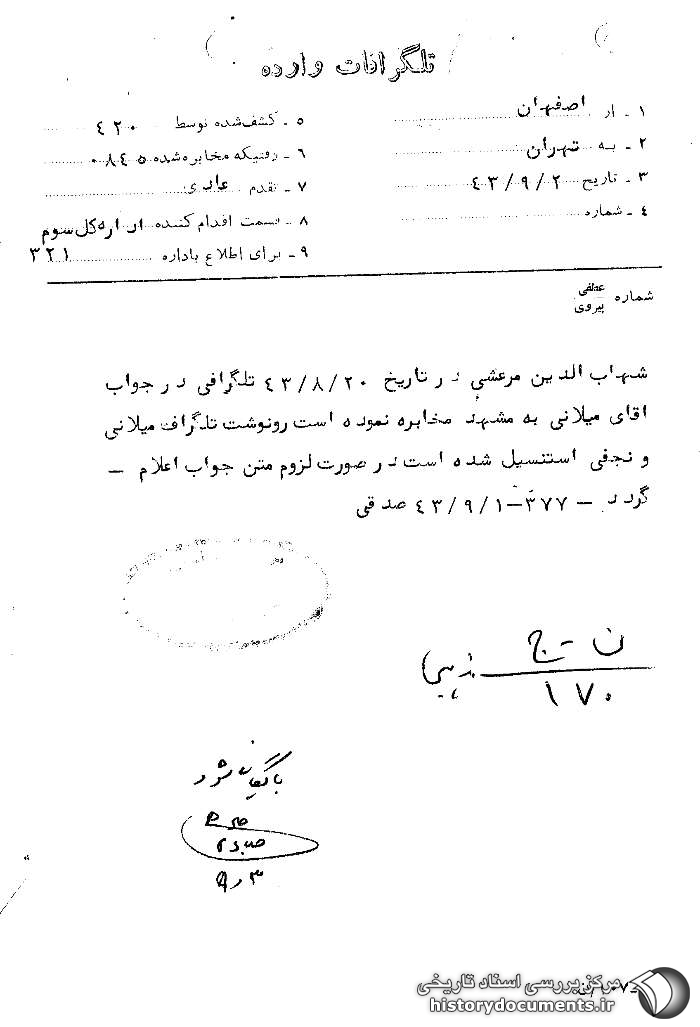 تلگرافات وارده
۱ - از اصفهان
۲ - به تهران
۳ - تاریخ ۴۳/۹/۲
۴ - شماره
۵ - کشف‌شده توسط ۴۲۰
۶ - دقیقه مخابره‌شده ۰۸۴۵
۷ - تقدم عادی
۸ - قسمت اقدام کننده اداره کل سوم
۹ - برای اطلاع باداره ۳۲۱
شماره عطفی
پیروی
شهاب الدین مرعشی در تاریخ ۴۳/۸/۲۰ تلگرافی در جواب
اقای میلانی به مشهد مخابره نموده است رونوشت تلگراف میلانی
و نجفی استنسیل شده است در صورت لزوم متن جواب اعلام –
گردد – ۳۷۷–۴۳/۹/۱ صدقی
ن - ج
۱۷۰
بایگانی شود
۹/۳
مرکز بررسی اسناد تاریخی
historydocuments.ir